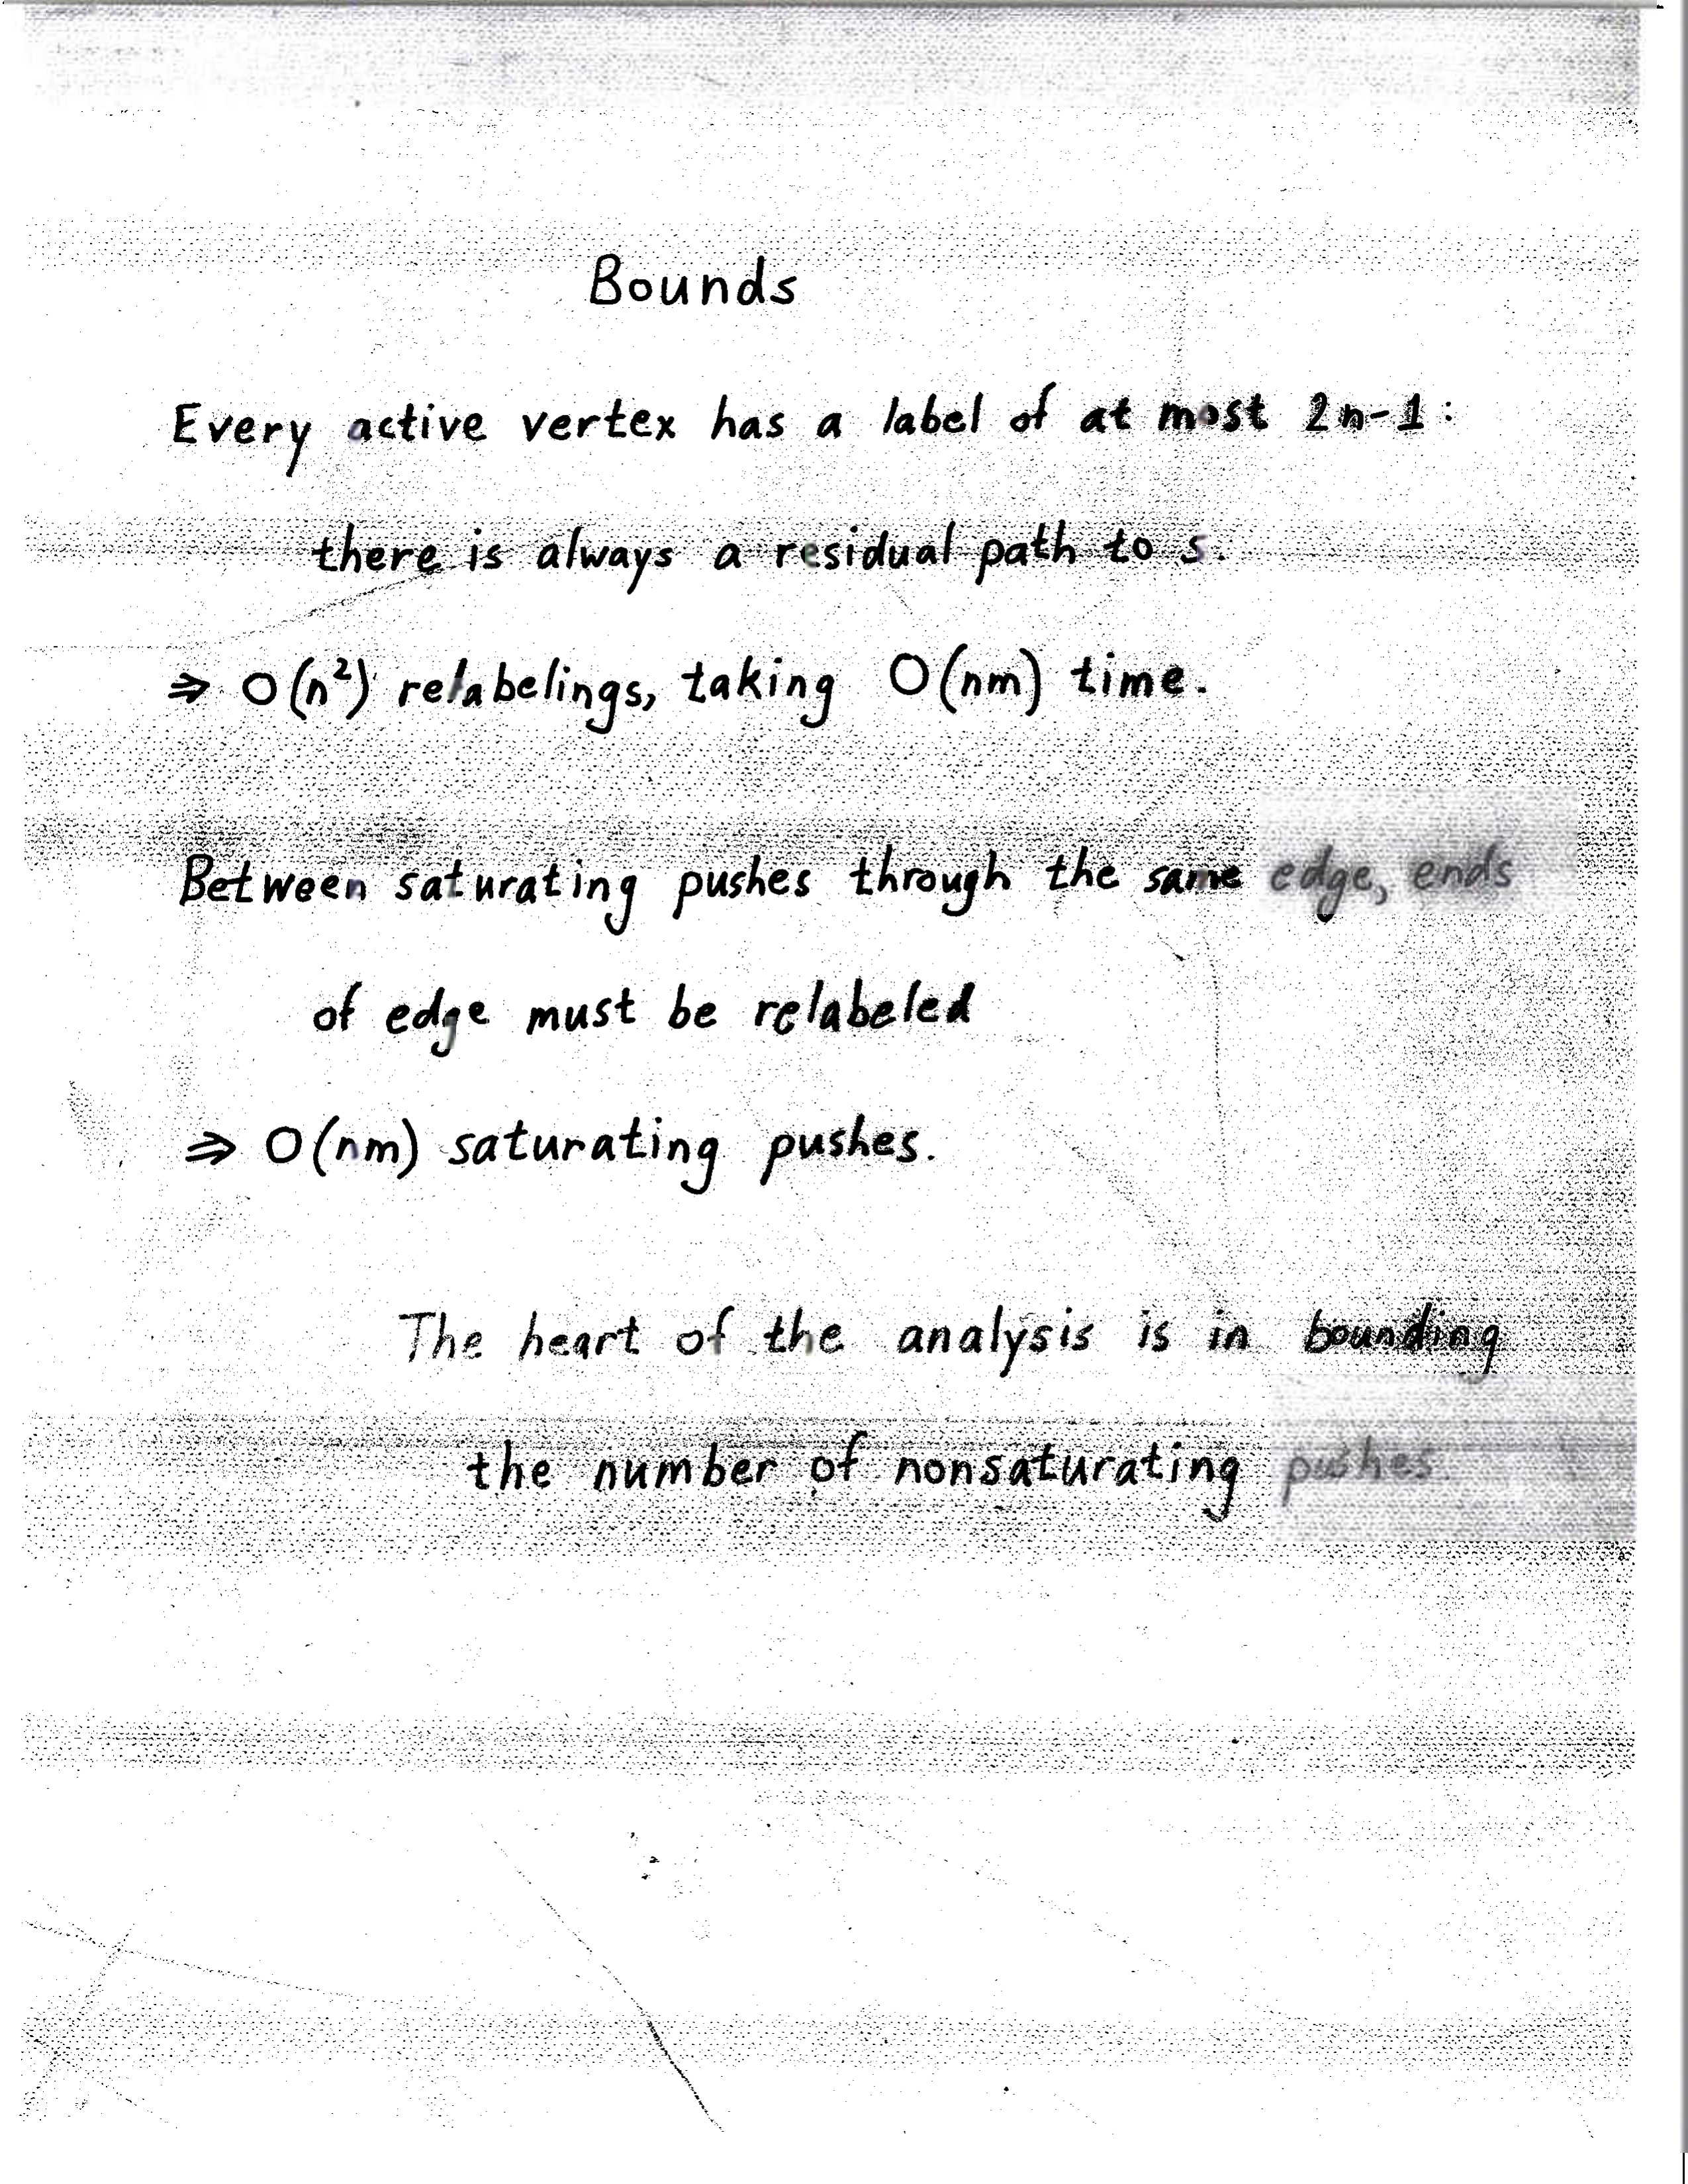 Bounds
Every active vertex has a label of at most 2n-1:
there is always a residual path to s.
⇒ O(n²) relabelings, taking O(nm) time.
Between saturating pushes through the same edge, ends
of edge must be relabeled
⇒ O(nm) saturating pushes.
The heart of the analysis is in bounding
the number of nonsaturating pushes